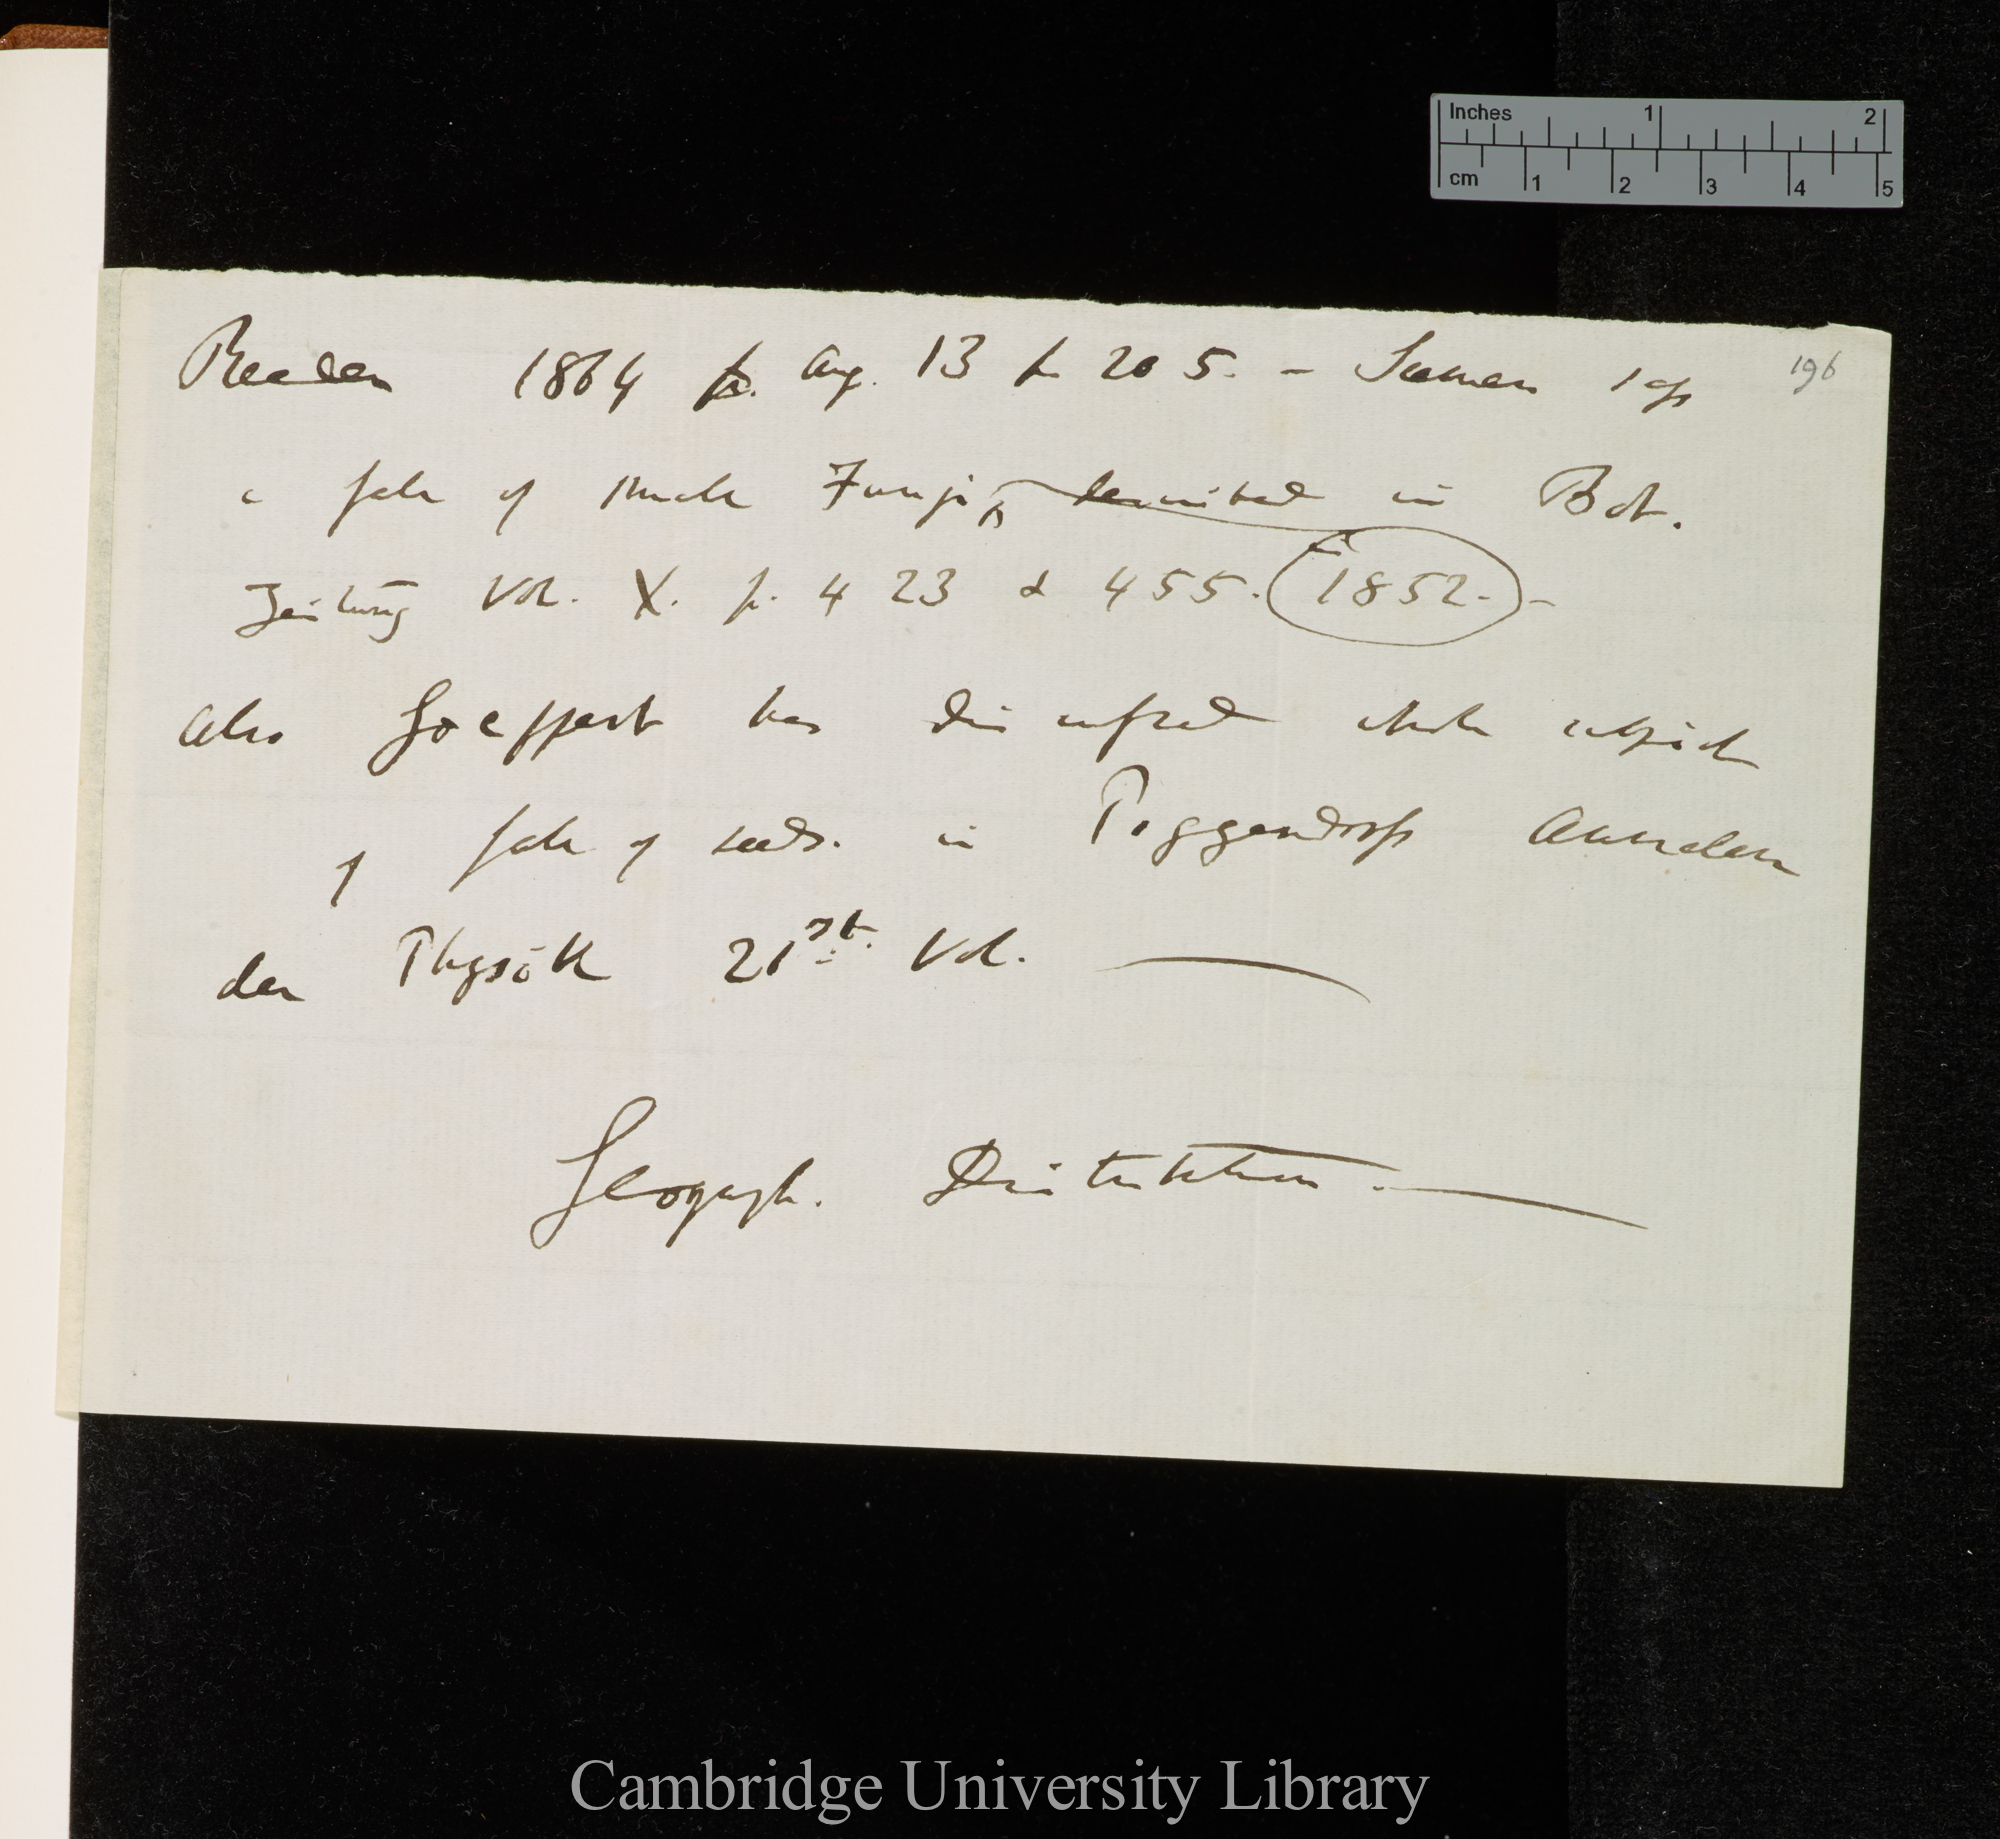 Inches 1 2
cm 1 2 3 4 5
196
Reader 1864 p. Aug. 13 p 205. — Seemen says
a fall of such Fungi, described in Bot.
Zeitung Vol. X. p. 423 & 455. (1852.) —
also Goeppert has discussed whole subject
of fall of seeds. in Poggendorff Annalen
der Physik 21st. Vol. —
Geograph. Distribution. —
Cambridge University Library